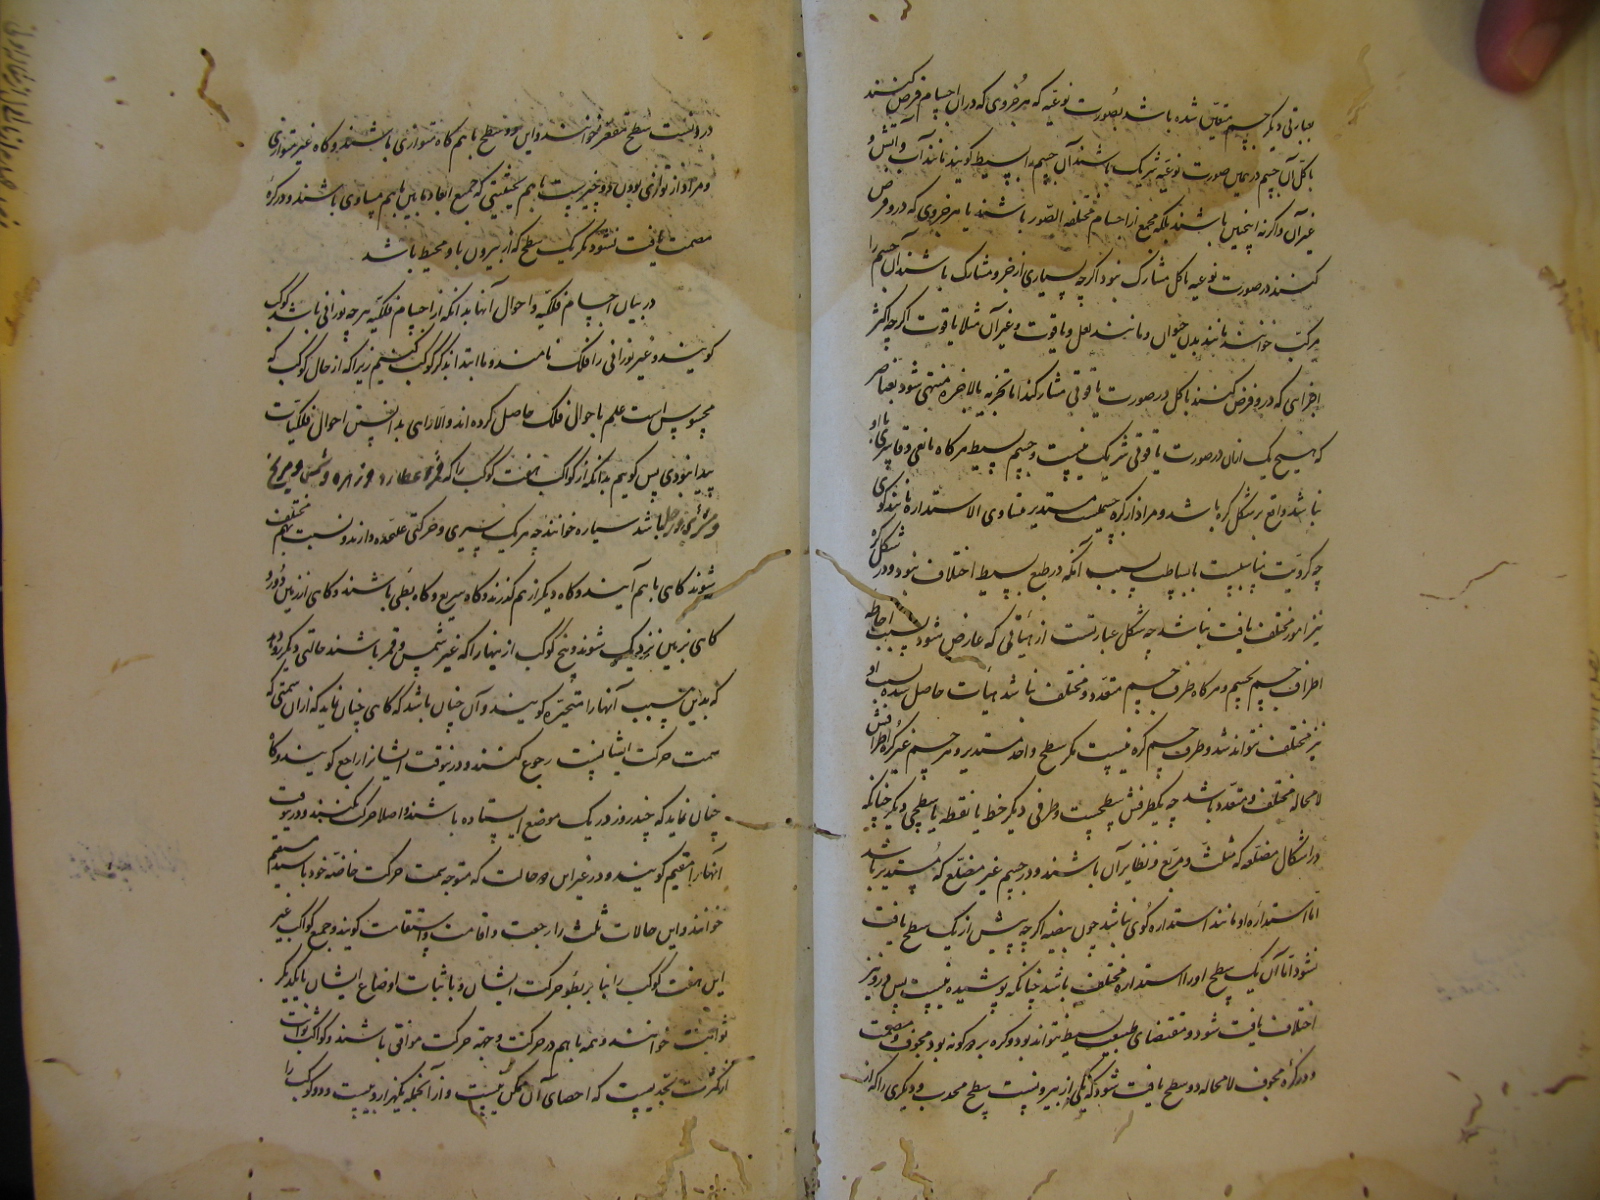 بعبارتی دیگر جسم متقابل شده باشد بصورت نوعیه که هر جزوی که دران اجسام فرض کنند
با کل آن جسم در همان صورت نوعیه شریک باشند آن جسم را بسیط گویند مانند آب و آتش و
غیر آن و اگر نه اینچنین باشند بلکه مجمع از اجسام مختلفه الصور باشند یا هر جزوی که درو فرض
کنند در صورت نوعیه با کل مشارک نبود اگرچه بسیاری از جزو مشارک باشند آن جسم را
مرکب خوانند مانند بدن حیوان و مانند لعل و یاقوت و غیر آن مثلا یاقوت اگرچه اکثر
اجزای که درو فرض کنند با کل در صورت یاقوتی مشارکند اما تجزیه بالاخره منتهی شود بعناصر
که هیچ یک ازان در صورت یاقوتی شریک نیست و جسم بسیط هرگاه مانعی و قاسری با او
نباشد واقع بر شکل کره باشد و مراد از کره جسمیست مستدیر متساوی الاستداره مانند گوی
چه کرویت مناسبست ببساطت بسبب آنکه در طبع بسیط اختلاف نبود و در شکل کره
نیز امور مختلف یافت نباشد چه شکل عبارتست از هیأتی که عارض شود بسبب احاطه
اطراف جسم بجسم و هرگاه طرف جسم متعدد و مختلف نباشد هیأت حاصل شده بسبب او
نیز مختلف نتواند شد و طرف جسم کره نیست مگر سطح واحد مستدیر و هر جسم غیر کره اطرافش
لامحاله مختلف و متعدد باشد چه یکطرفش سطحیست و طرفی دیگر خط یا نقطه یا سطحی دیگر چنانکه
در اشکال مضلعه که مثلث و مربع و نظایر آن باشند و در جسم غیر مضلع که مستدیر باشد
اما استداره او مانند استداره گوی نباشد چون بیضه اگرچه بیش از یک سطح یافت
نشود اما آن یک سطح او را استداره مختلف باشد چنانکه پوشیده نیست پس درو نیز
اختلاف یافت شود و مقتضای طبع بسیط نتواند بود و کره بر دو گونه بود مجوف و مصمت
و در کره مجوف لامحاله دو سطح یافت شود که یکی از بیرونست سطح محدب و دیگری را که از
درونست سطح مقعر خوانند و این دو سطح با هم گاه متوازی باشند و گاه غیر متوازی
و مراد از توازی بودن دو چیز است با هم بحیثیتی که جمیع ابعاد مابین با هم مساوی باشند و در کره
مصمت یافت نشود مگر یک سطح که از بیرون باو محیط باشد
در بیان اجسام فلکیه و احوال آنها بدانکه از اجسام فلکیه هرچه نورانی باشد کوکب
گویند و غیر نورانی را فلک نامند و ما ابتدا بذکر کوکب کنیم زیرا که از حال کوکب که
محسوس است علم باحوال فلک حاصل کرده اند و الا راهی بدانستن احوال فلکیات
پیدا نبودی پس گویم بدانکه از کواکب هفت کوکب را که قمر و عطارد و زهره و شمس و مریخ
و مشتری و زحل باشد سیاره خوانند چه هر یک سیری و حرکتی علیحده دارند و نسبت بهم مختلف
شوند گاهی با هم آیند و گاه دیگر از هم گذرند و گاه سریع و گاه بطی باشند و گاهی از زمین دور و
گاهی بزمین نزدیک شوند و پنج کوکب از ینها را که غیر شمس و قمر باشند حالتی دیگر رو دهد
که بداین سبب آنها را متحیره گویند و آن چنان باشد که گاهی چنان نماید که ازان سمتی که
سمت حرکت ایشانست رجوع کنند و درینوقت ایشانرا راجع گویند و گاه
چنان نماید که چند روز در یک موضع ایستاده باشند و اصلا حرکت نکنند و درینوقت
آنها را مقیم گویند و در غیر این دو حالت که متوجه سمت حرکت خاصه خود باشند مستقیم
خوانند و این حالات ثلث را رجعت و اقامت و استقامت گویند و جمیع کواکب غیر
این هفت کوکب را بنا بر بطؤ حرکت ایشان و یا ثبات اوضاع ایشان با یکدیگر
ثوابت خوانند و همه با هم در حرکت و جهة حرکت موافق باشند و کواکب ثوابت
از کثرت بحدیست که احصای آن ممکن نیست و از آنجمله یکهزار و بیست و دو کوکب را